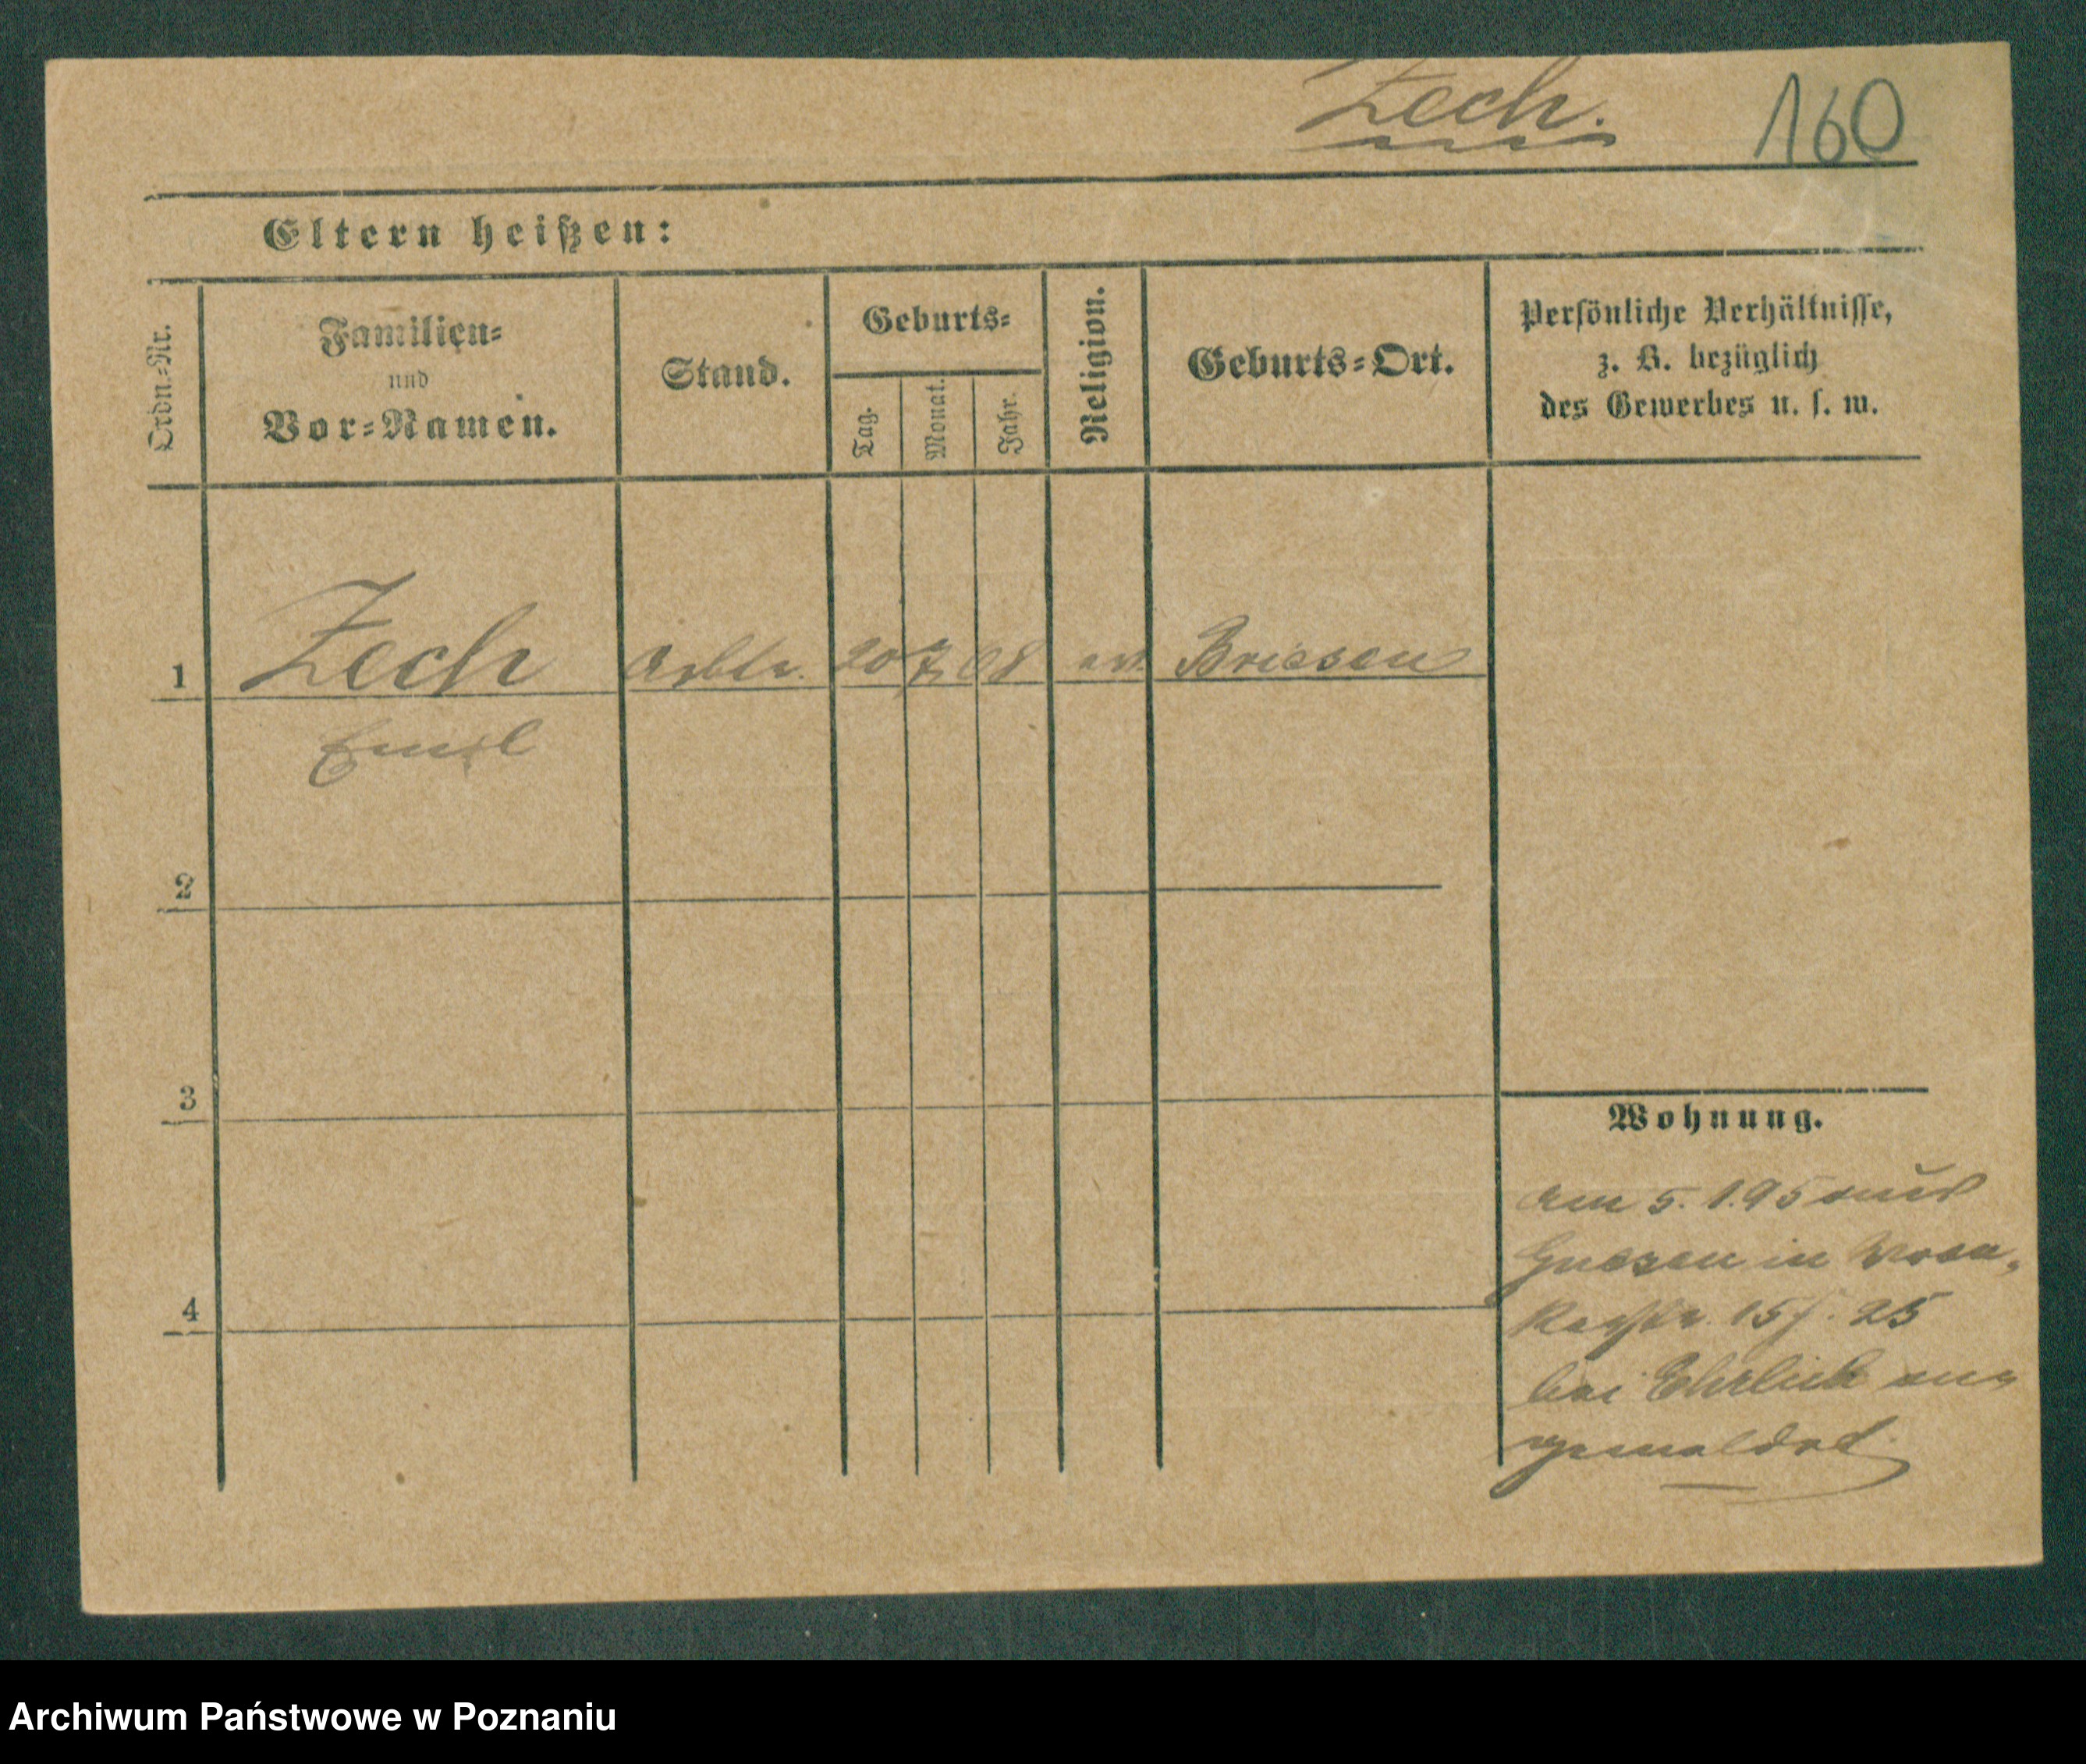 Zech.
160
Eltern heißen:
Ordn.-Nr.
Familien-
und
Vor-Namen.
Stand.
Geburts-
Tag.
Monat.
Jahr.
Religion.
Geburts-Ort.
Persönliche Verhältnisse,
z. B. bezüglich
des Gewerbes u. s. w.
1 Zech Arbtr. 20 7 68 ev. Briesen
Emil
2
3
4
Wohnung.
Am 5. 1. 95 aus
Gnesen in
15 25
bei Ehrlich an-
gemeldet.
Archiwum Państwowe w Poznaniu